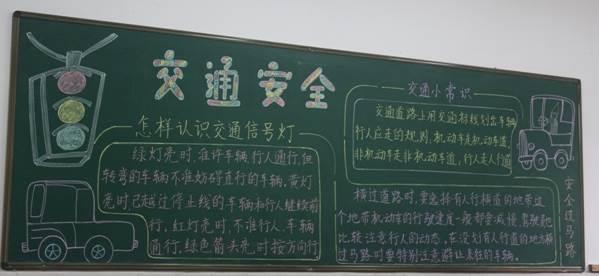 交通安全
怎样认识交通信号灯
绿灯亮时,准许车辆,行人通行,但
转弯的车辆不准妨碍直行的车辆,黄灯
亮时已越过停止线的车辆和行人继续前
行,红灯亮时,不准行人、车辆
前行,绿色箭头亮时按方向行
交通小常识
交通道路上用交通标线划出车辆
行人应走的规则,机动车走机动车道,
非机动车走非机动车道,行人走人行道
横过道路时,要选择有人行横道的地带这
个地带机动车的行驶速度一般都要减慢,驾驶员也
比较注意行人的动态,在没划有人行道的地方横
过马路时要特别注意避让来往的车辆。
安全过马路